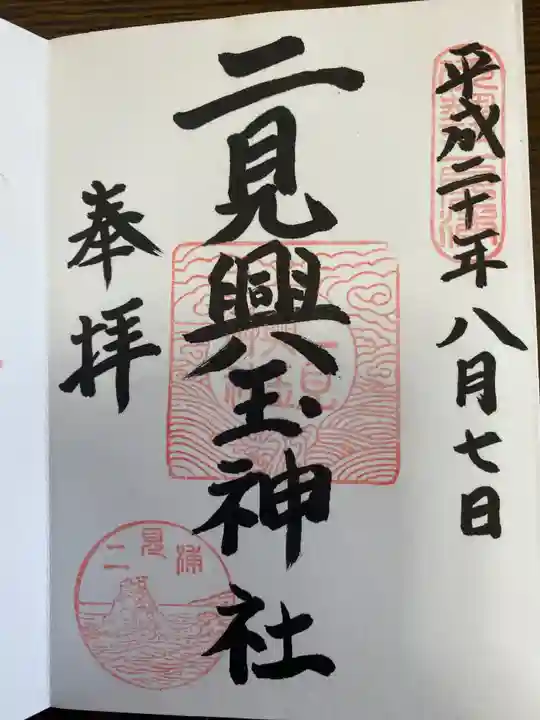 平成二十年八月七日
二見興玉神社
奉拝
二見浦